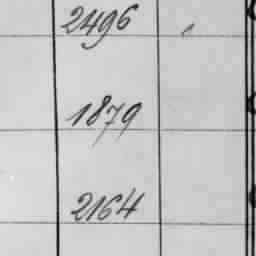 2496
1879
2164